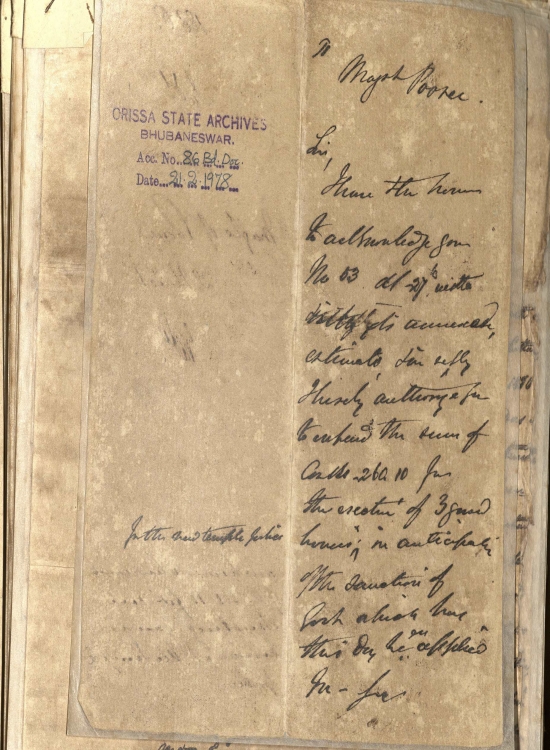 ORISSA STATE ARCHIVES
BHUBANESWAR.
Acc. No. 86 Bd. Dec.
Date 21.2.1978
To
Major
Sir,
I have the honor
to acknowledge your
No 53 dt 27th
its annexed
estimate, & in reply
I hereby authorize you
to expend the sum of
260.10 for
the erection of 3 guard
houses in anticipation
for the new temple police
of the sanction of
Govt which has
this day been applied
for